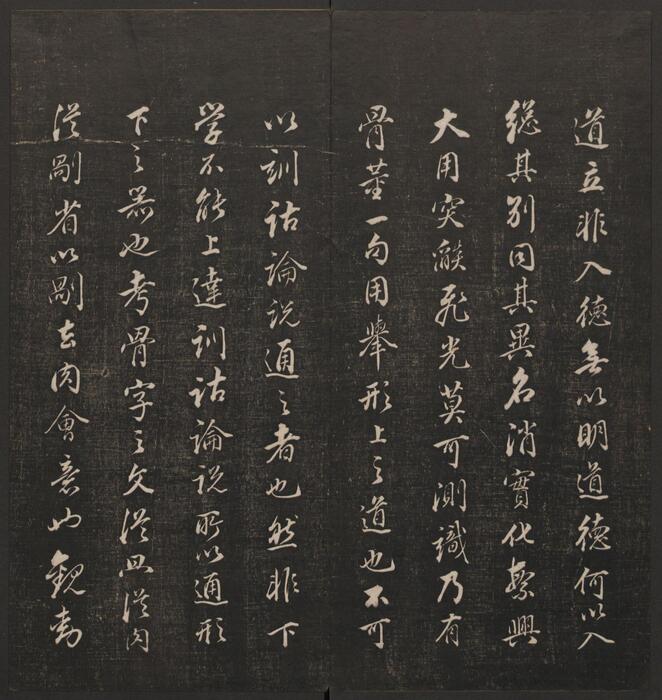 道立非入德無以明道德何以入
總其别同其異名消實化繋興
大用突發飛光莫可測識乃有
骨董一句用舉形上之道也不可
以訓詁論説通之者也然非下
学不能上達訓詁論説所以通形
下之器也考骨字之文從冎從肉
從剮省以剮去肉會意也觀